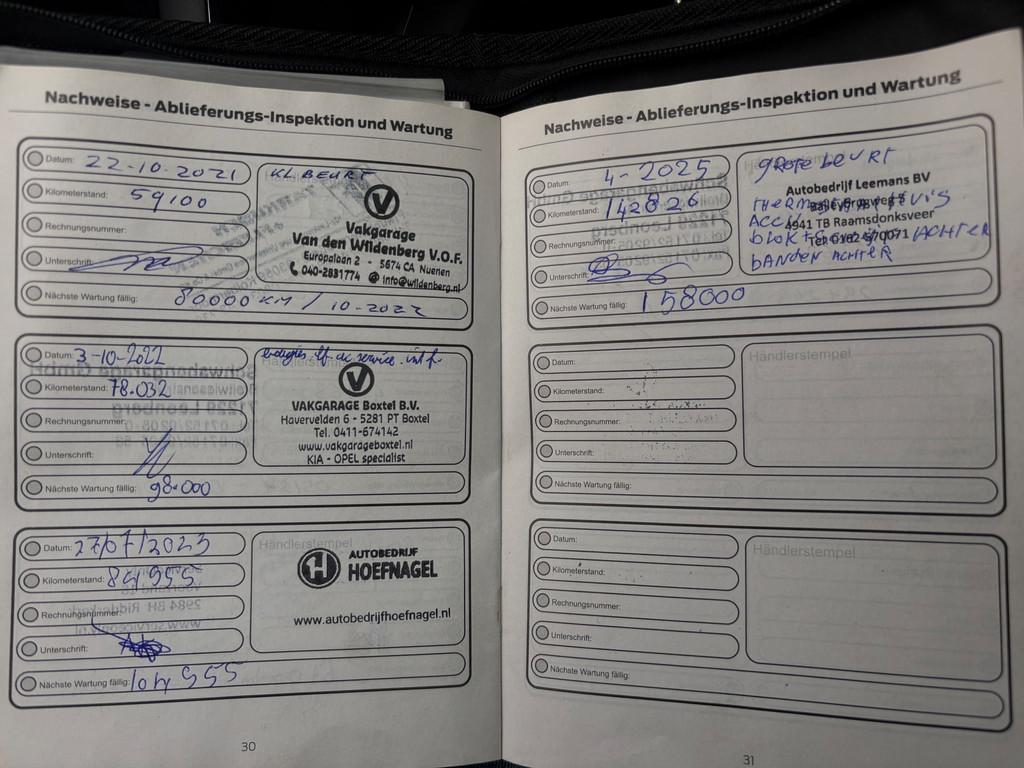 Nachweise - Ablieferungs-Inspektion und Wartung
Datum: 22-10-2021
Kilometerstand: 59100
Rechnungsnummer:
Unterschrift:
Nächste Wartung fällig: 80000 KM / 10-2022
KL BEURT
Vakgarage
Van den Wildenberg V.O.F.
Europalaan 2 - 5674 CA Nuenen
040-2831774 @ info@wildenberg.nl
Datum: 3-10-2022
Kilometerstand: 78.032
Rechnungsnummer:
Unterschrift:
Nächste Wartung fällig: 98.000
service
VAKGARAGE Boxtel B.V.
Havervelden 6 - 5281 PT Boxtel
Tel. 0411-674142
www.vakgarageboxtel.nl
KIA - OPEL specialist
Datum: 27/07/2023
Kilometerstand: 84955
Rechnungsnummer:
Unterschrift:
Nächste Wartung fällig: 104955
Händlerstempel
H AUTOBEDRIJF
HOEFNAGEL
www.autobedrijfhoefnagel.nl
30
Nachweise - Ablieferungs-Inspektion und Wartung
Datum: 4-2025
Kilometerstand: 142826
Rechnungsnummer:
Unterschrift:
Nächste Wartung fällig: 158000
grote beurt
Autobedrijf Leemans BV
4941 TB Raamsdonksveer
ACCU
blokken ACHTER
bANDEN ACHTER
Datum:
Kilometerstand:
Rechnungsnummer:
Unterschrift:
Nächste Wartung fällig:
Händlerstempel
Datum:
Kilometerstand:
Rechnungsnummer:
Unterschrift:
Nächste Wartung fällig:
Händlerstempel
31